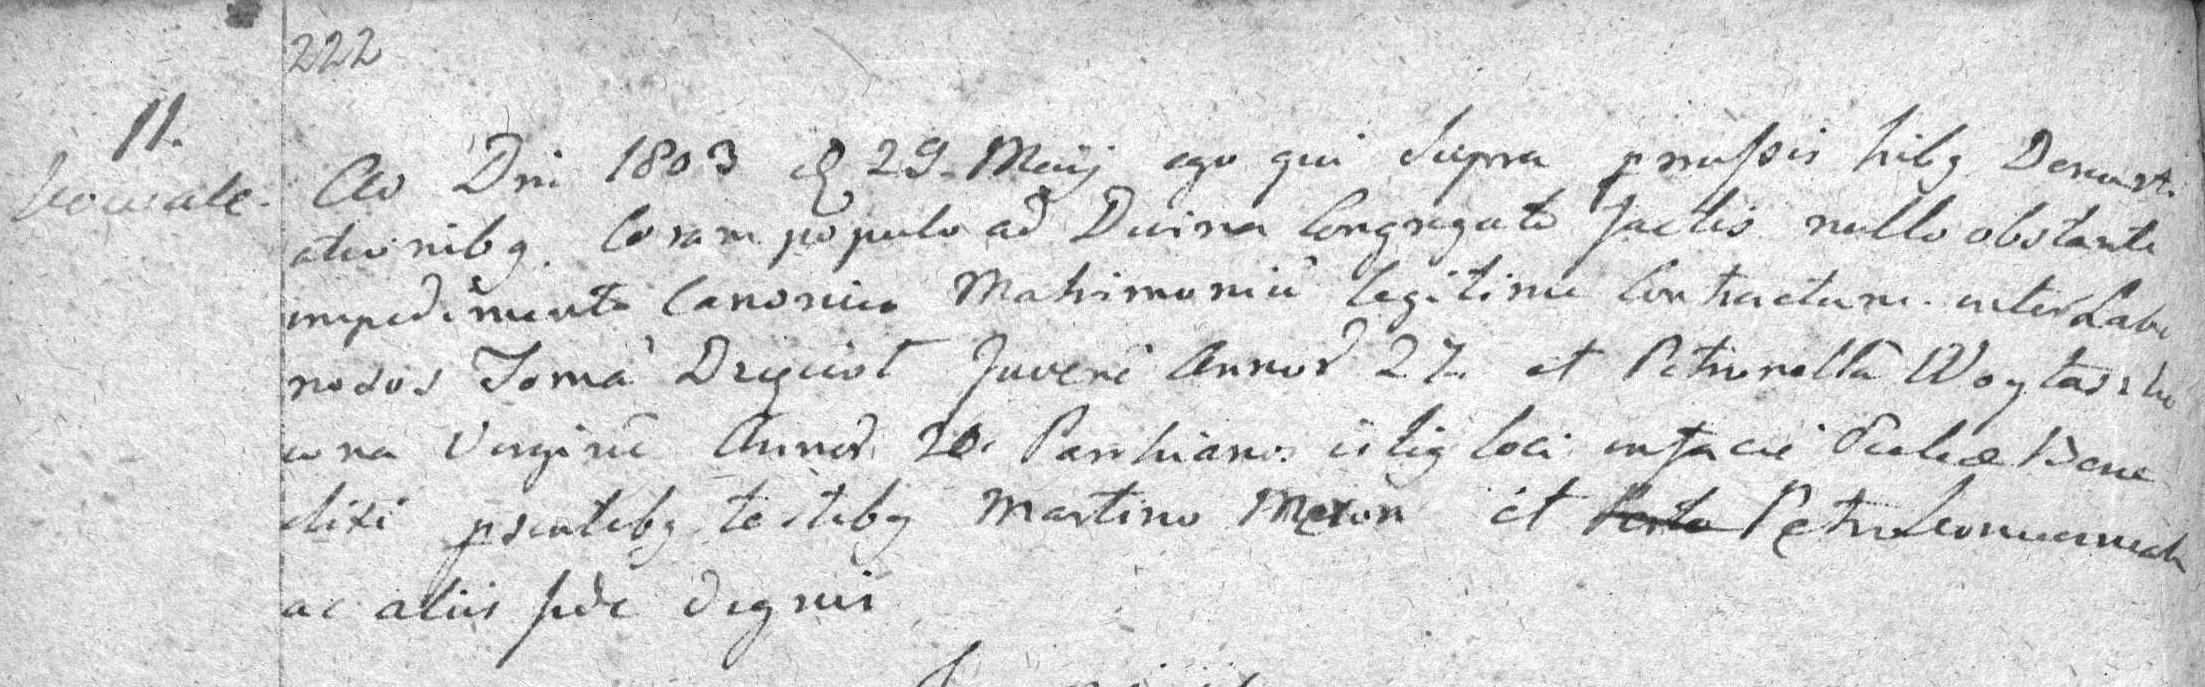 222
11.
Ao Dni 1803 d 29. Maij ego qui supra pmissis tribg Denunti
ationibg. Coram populo ad Divina Congregato factis nullo obstante
impedimento Canonico Matrimoniũ legitime Contractum inter Labo
riosos Tomã Juvenẽ Annor 27. et Petronella Woytaszko
wna Virginẽ Annor 20. Parohianos istig loci in facie Ecclae Bene
dixi psentibg testibg Martino et Petro
ac aliis fide dignis